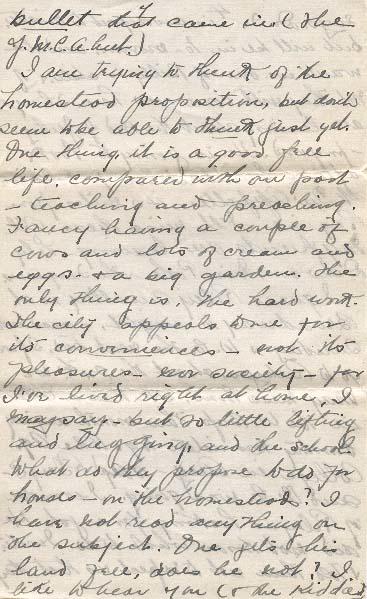 bullet that came in (the
Y.M.C.A. hut.)
I am trying to think of the
homestead proposition, but don't
seem to be able to think just yet.
One thing, it is a good free
life. compared with our past
- teaching and preaching.
Fancy having a couple of
cows and lots of cream and
eggs. & a big garden. The
only thing is. the hard work.
The city appeals to me for
its conveniences - not its
pleasures - nor society - for
I've lived right at home, I
may say - but so little lifting
and lugging, and the school.
What do they propose to do for
houses - on the homestead? I
have not read anything on
the subject. One gets his
land free, does he not? I
like to hear you (& the kiddies